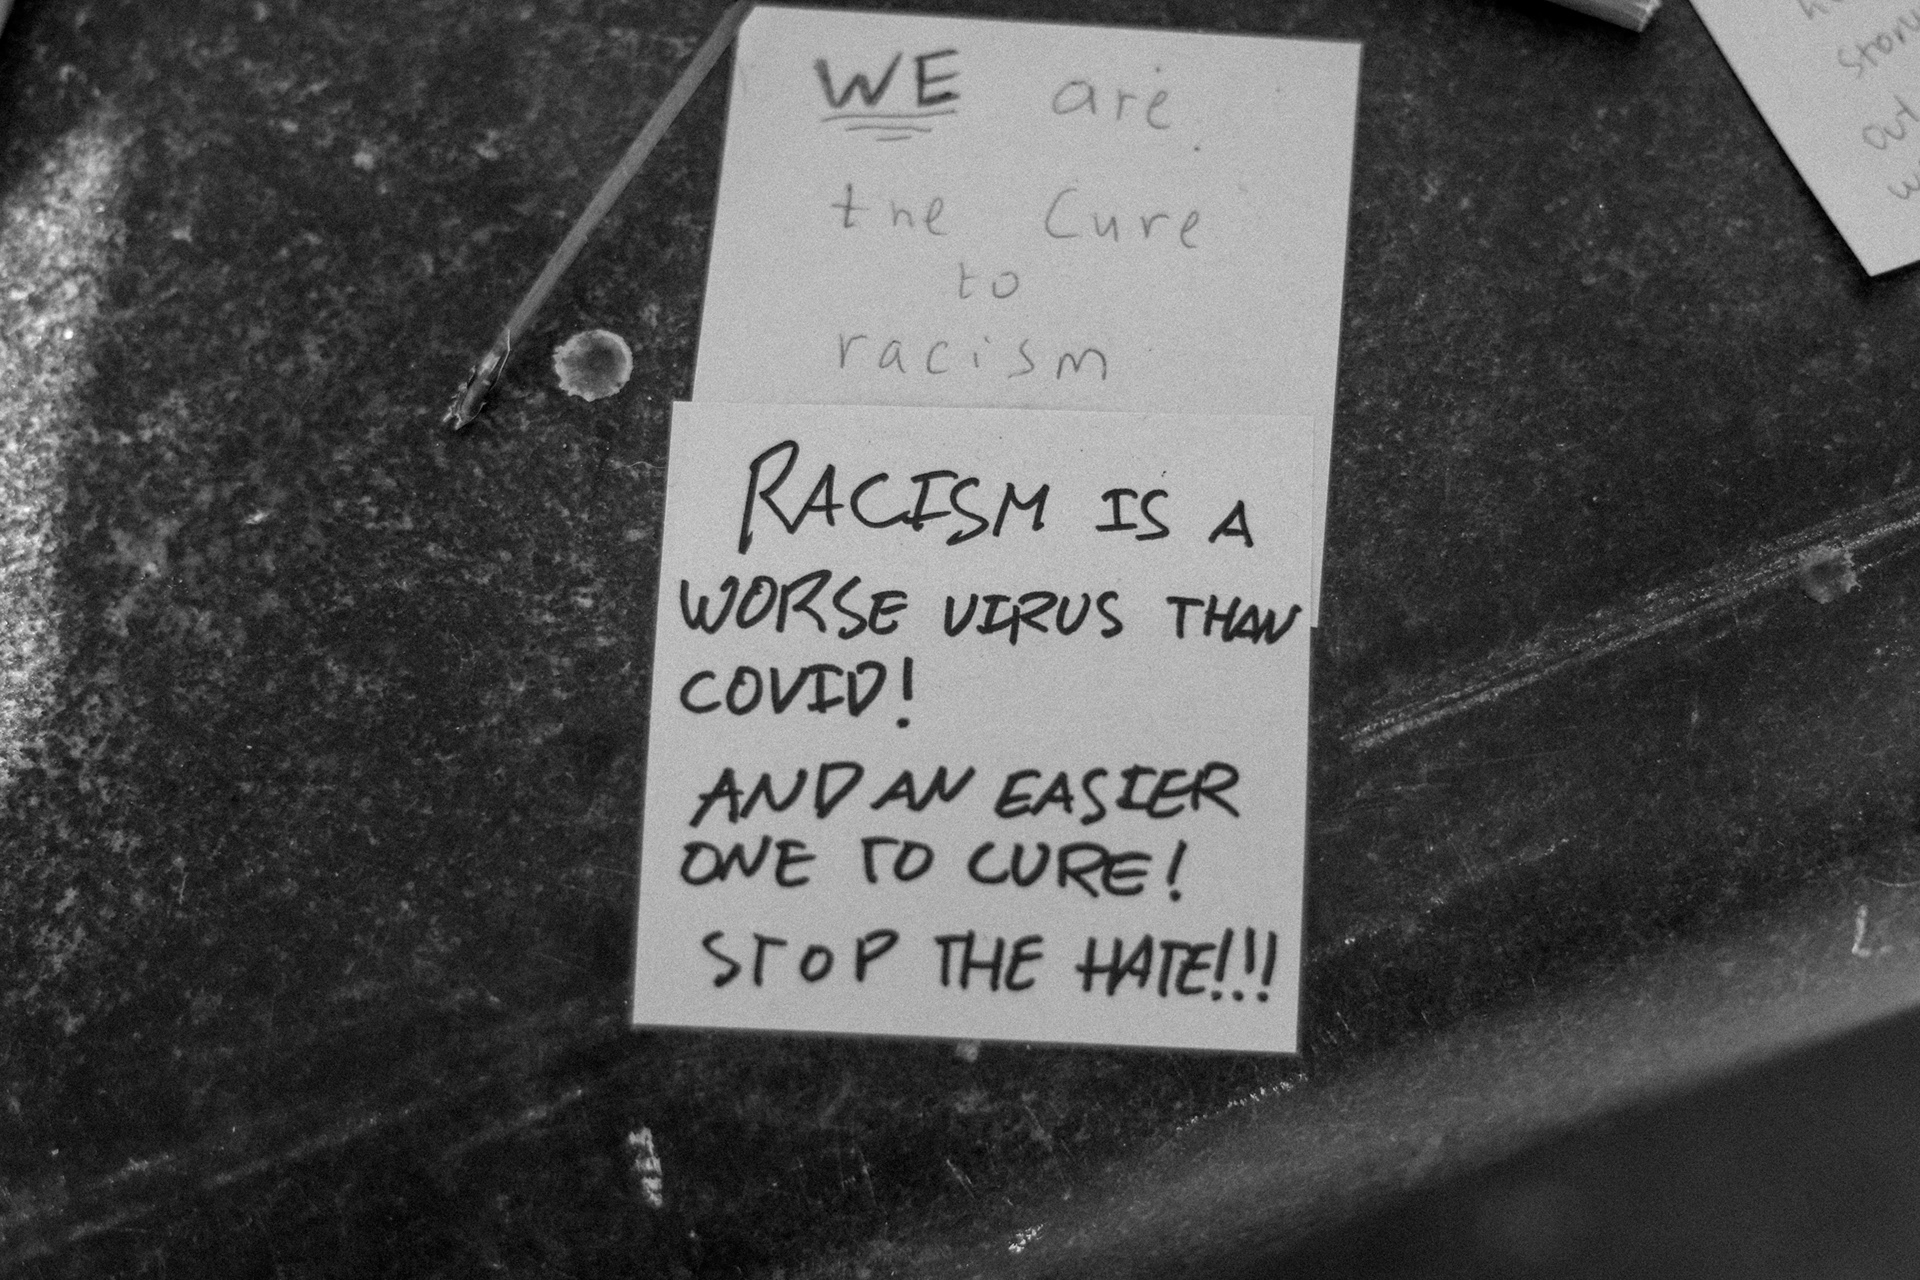 WE are
the Cure
to
racism
RACISM IS A
WORSE VIRUS THAN
COVID!
AND AN EASIER
ONE TO CURE!
STOP THE HATE!!!
out